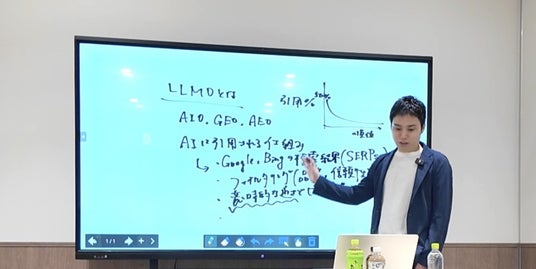 LLMOとは
AIO、GEO、AEO
AIに引用される仕組み
↳・Google、Bingの検索結果(SERPs)
・フィルタリング(
・意味的な
引用%
50%
順位
1/1